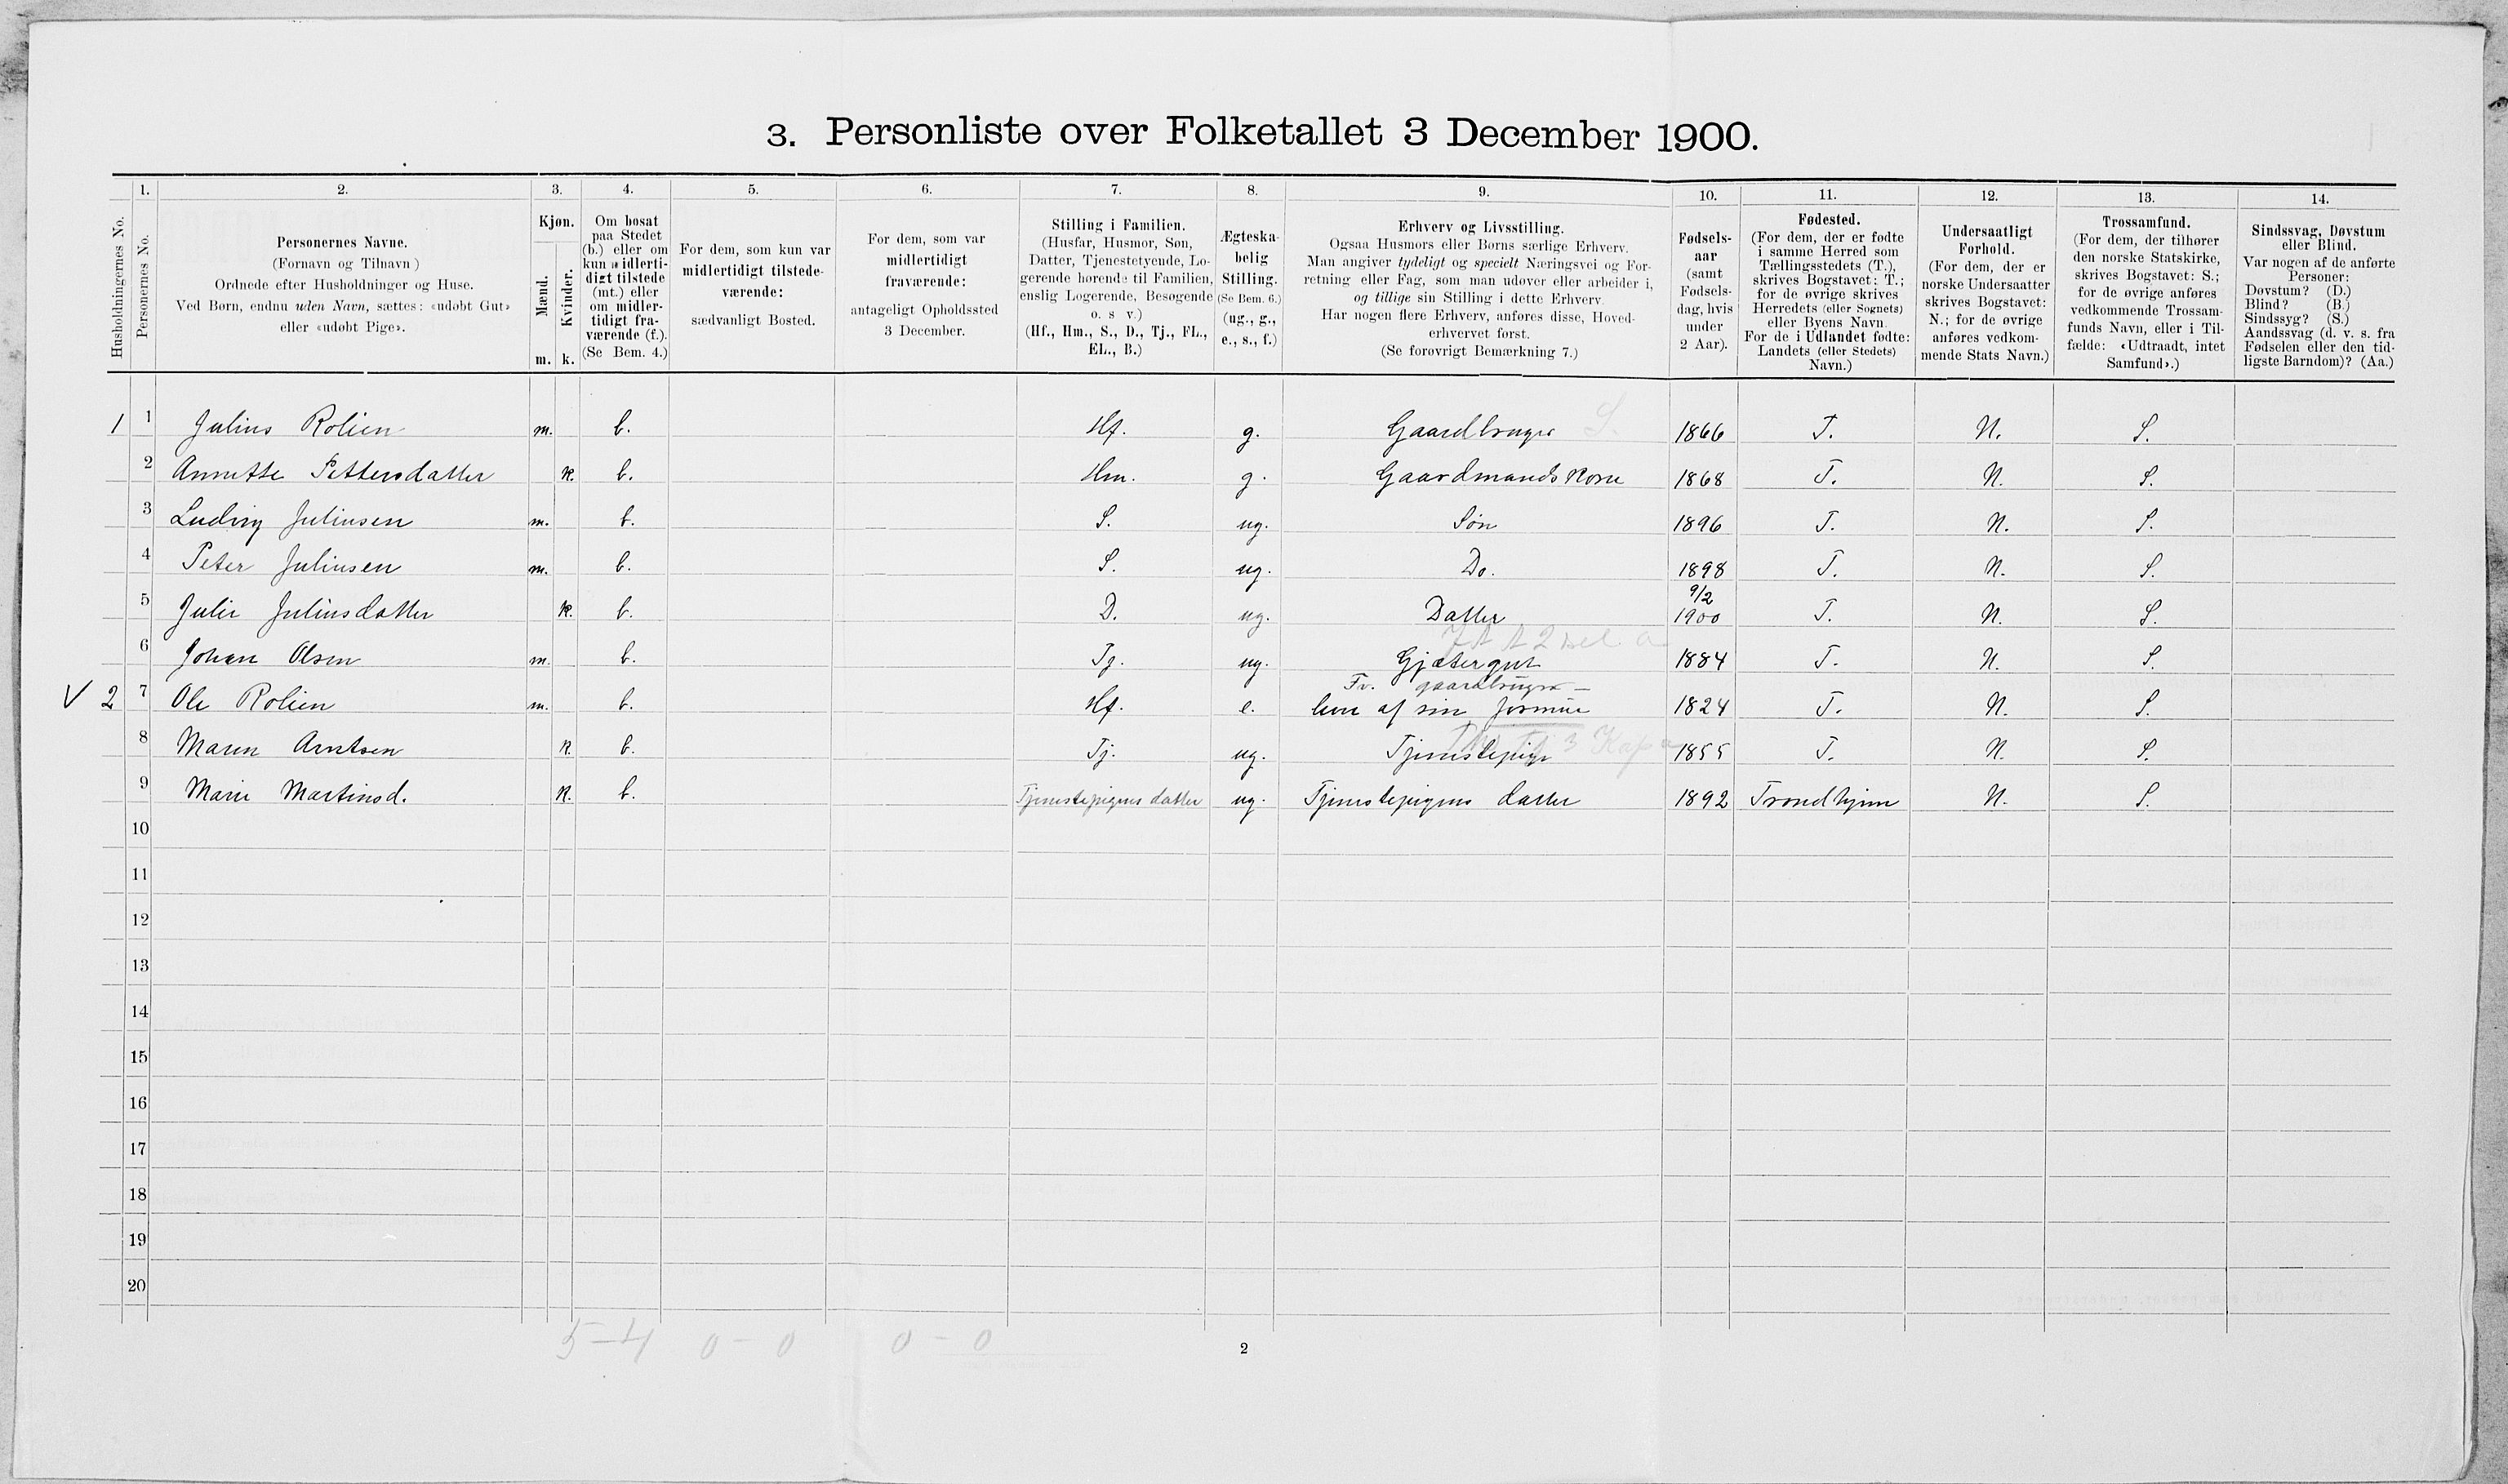 3. Personliste over Folketallet 3 December 1900.
Husholdningernes No.
1.
Personernes No.
2.
Personernes Navne.
(Fornavn og Tilnavn)
Ordnede efter Husholdninger og Huse.
Ved Børn, endnu uden Navn, sættes: «udøbt Gut»
eller «udøbt Pige».
3.
Kjøn.
Mænd.
Kvinder.
m. k.
4.
Om bosat
paa Stedet
(b.) eller om
kun midlerti-
digt tilstede
(mt.) eller
om midler-
tidigt fra-
værende (f.).
(Se Bem. 4.)
5.
For dem, som kun var
midlertidigt tilstede-
værende:
sædvanligt Bosted.
6.
For dem, som var
midlertidigt
fraværende:
antageligt Opholdssted
3 December.
7.
Stilling i Familien.
(Husfar, Husmor, Søn,
Datter, Tjenestetyende, Lo-
gerende hørende til Familien,
enslig Logerende, Besøgende
o. s v.)
(Hf., Hm., S., D., Tj., FL.,
EL., B.)
8.
Ægteska-
belig
Stilling.
(Se Bem. 6.)
(ug., g.,
e., s., f.)
9.
Erhverv og Livsstilling.
Ogsaa Husmors eller Børns særlige Erhverv.
Man angiver tydeligt og specielt Næringsvei og For-
retning eller Fag, som man udøver eller arbeider i,
og tillige sin Stilling i dette Erhverv.
Har nogen flere Erhverv, anføres disse, Hoved-
erhvervet først.
(Se forøvrigt Bemærkning 7.)
10.
Fødsels-
aar
(samt
Fødsels-
dag, hvis
under
2 Aar).
11.
Fødested.
(For dem, der er fødte
i samme Herred som
Tællingsstedets (T.),
skrives Bogstavet: T.;
for de øvrige skrives
Herredets (eller Sognets)
eller Byens Navn.
For de i Udlandet fødte:
Landets (eller Stedets)
Navn.)
12.
Undersaatligt
Forhold.
(For dem, der er
norske Undersaatter
skrives Bogstavet:
N.; for de øvrige
anføres vedkom-
mende Stats Navn.)
13.
Trossamfund.
(For dem, der tilhører
den norske Statskirke,
skrives Bogstavet: S.;
for de øvrige anføres
vedkommende Trossam-
funds Navn, eller i Til-
fælde: «Udtraadt, intet
Samfund».)
14.
Sindssvag, Døvstum
eller Blind.
Var nogen af de anførte
Personer:
Døvstum? (D.)
Blind? (B.)
Sindssyg? (S.)
Aandssvag (d. v. s. fra
Fødselen eller den tid-
ligste Barndom)? (Aa.)
1 1 Julius Rolien m. b. Hf. g. Gaardbruger S. 1866 T. N. S.
2 Annette Pettersdatter k. b. Hm. g. Gaardmands Kone 1868 T. N. S.
3 Ludvig Juliusen m. b. S. ug. Søn 1896 T. N. S.
4 Peter Juliusen m. b. S. ug. Do. 1898 T. N. S.
5 Julie Juliusdatter k. b. D. ug. Datter 9/2 1900 T. N. S.
6 Johan Olsen m. b. Tj. ug. Gjætergut 1884 T. N. S.
Fv. gaardbruger —
V 2 7 Ole Rolien m. b. Hf. e. leve af sin formue 1824 T. N. S.
8 Maren Arntsen k. b. Tj. ug. Tjenestepige 1855 T. N. S.
9 Marie Martinsd. k. b. Tjenestepigens datter ug. Tjenestepigens datter 1892 Trondhjem N. S.
10
11
12
13
14
15
16
17
18
19
20
5 - 4 0 - 0 0 - 0
2